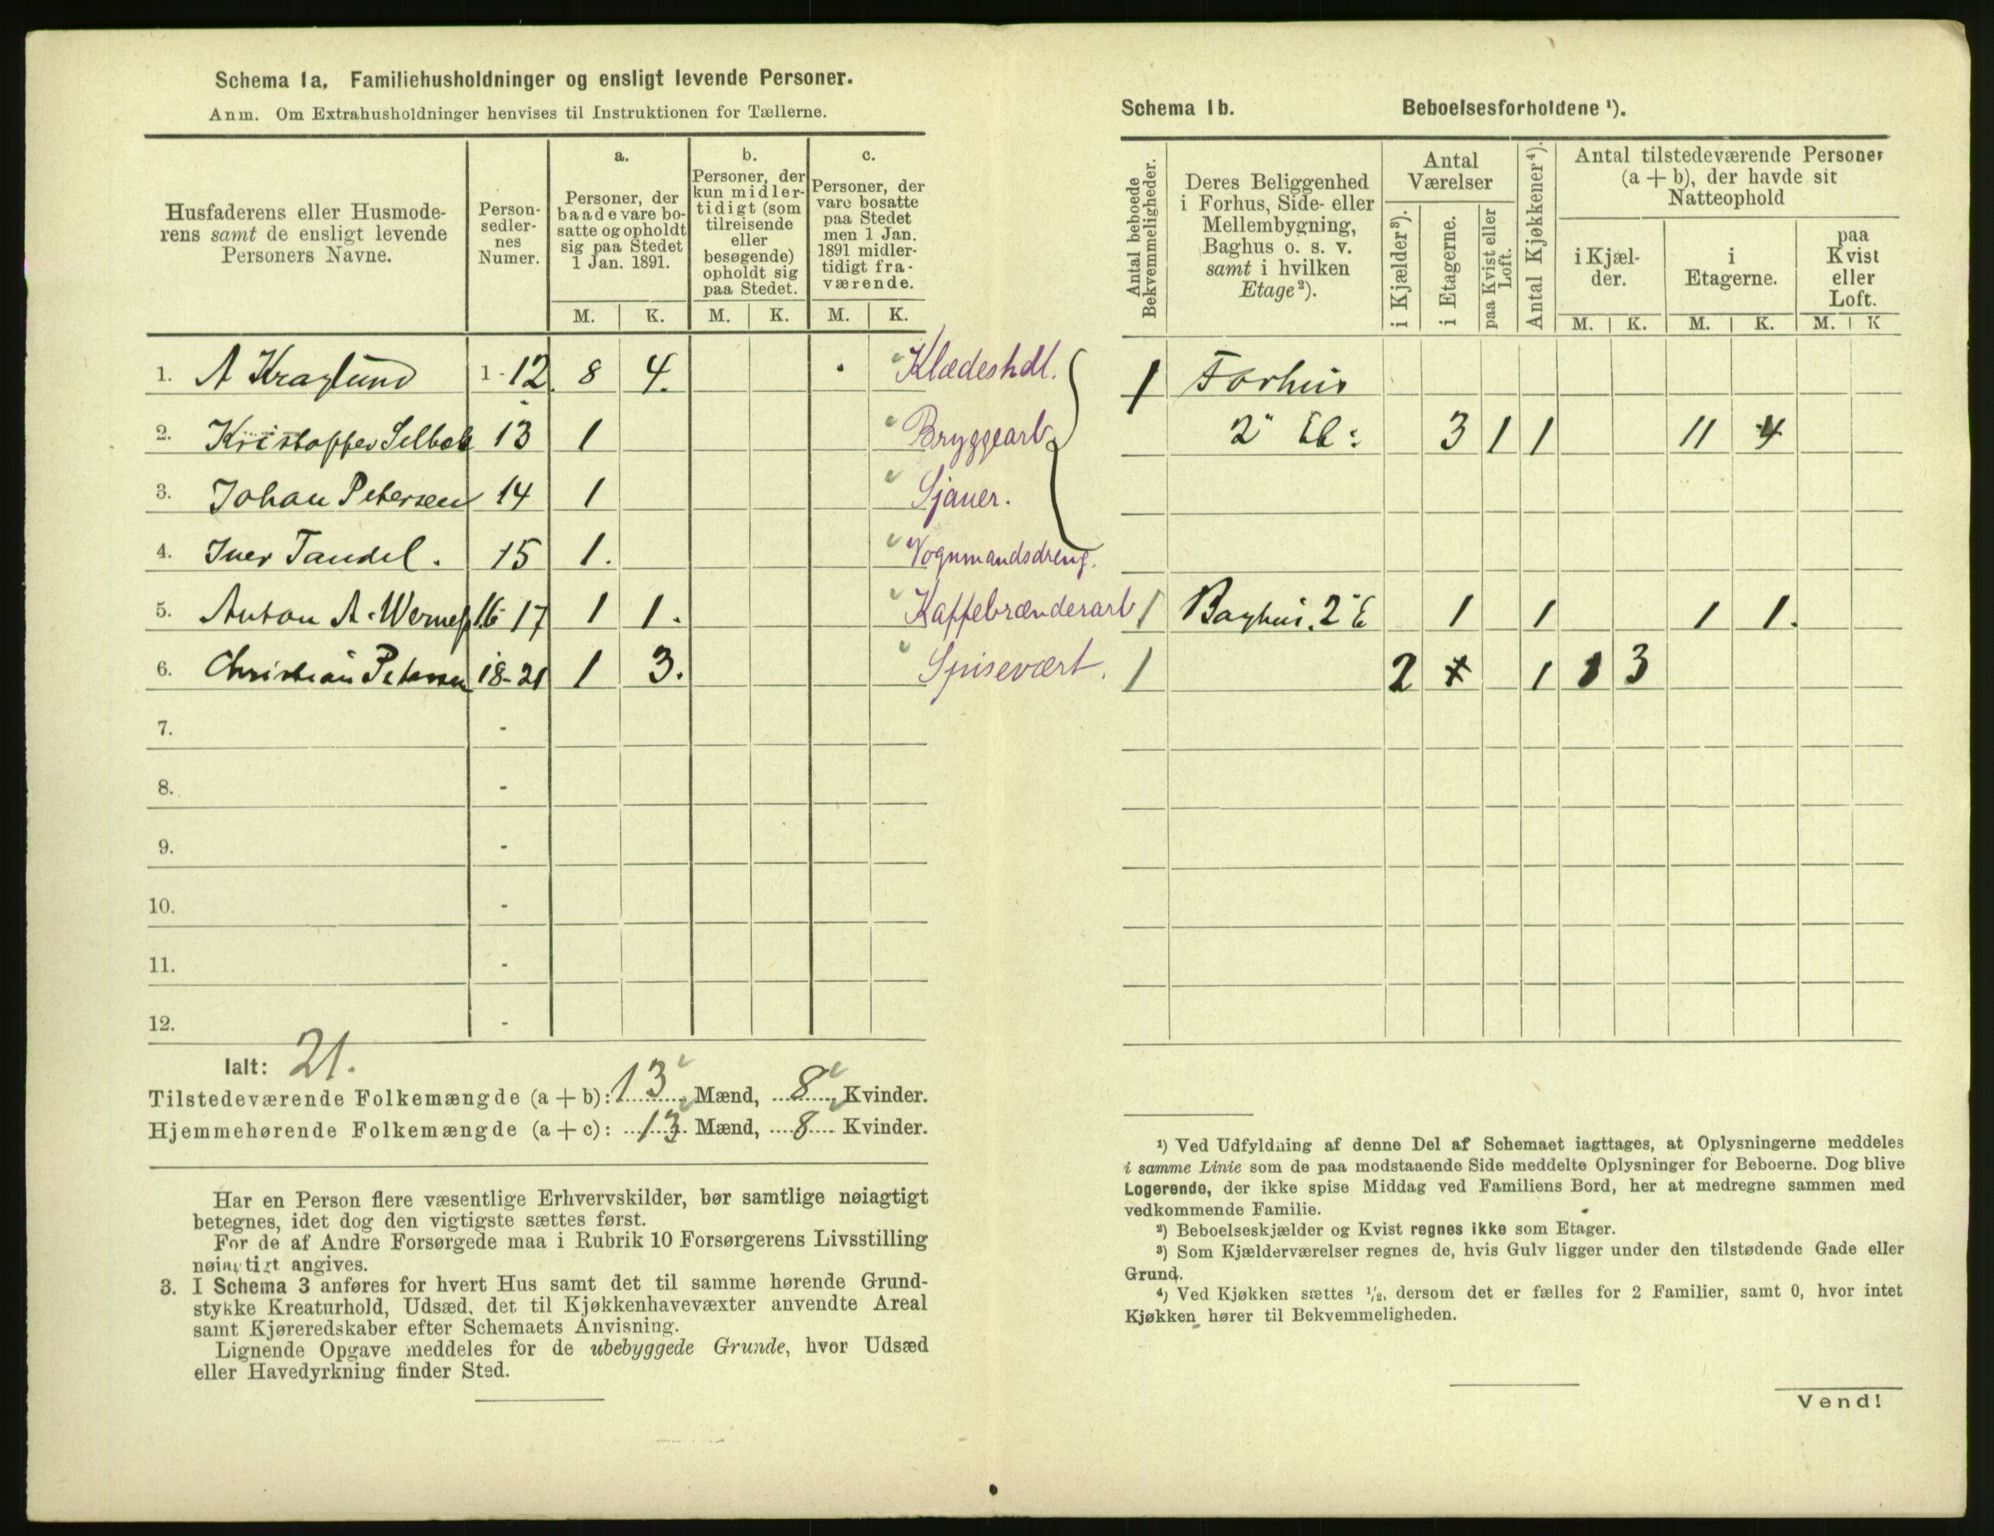 Schema 1a. Familiehusholdninger og ensligt levende Personer.
Anm. Om Extrahusholdninger henvises til Instruktionen for Tællerne.
Husfaderens eller Husmode-
rens samt de ensligt levende
Personers Navne.
Person-
sedler-
nes
Numer.
a.
Personer, der
baade vare bo-
satte og opholdt
sig paa Stedet
1 Jan. 1891.
b.
Personer, der
kun midler-
tidigt (som
tilreisende
eller
besøgende)
opholdt sig
paa Stedet.
c.
Personer, der
vare bosatte
paa Stedet
men 1 Jan.
1891 midler-
tidigt fra-
værende.
M. K. M. K. M. K.
1. A Kraglund 1-12. 8 4. Klædeshdl.
2. Kristoffer Selbak 13 1 Bryggearb
3. Johan Petersen 14 1 Sjauer.
4. Iver Tandel. 15 1. Vognmandsdreng.
5. Anton A. 16-17 1 1. Kaffebrænderarb
6. Christian Petersen 18-21 1 3. Spisevært.
7. -
8. -
9. -
10. -
11. -
12. -
Ialt: 21.
Tilstedeværende Folkemængde (a + b): 13 Mænd, 8 Kvinder.
Hjemmehørende Folkemængde (a + c): 13 Mænd, 8 Kvinder.
Har en Person flere væsentlige Erhvervskilder, bør samtlige nøiagtigt
betegnes, idet dog den vigtigste sættes først.
For de af Andre Forsørgede maa i Rubrik 10 Forsørgerens Livsstilling
nøiagtigt angives.
3. I Schema 3 anføres for hvert Hus samt det til samme hørende Grund-
stykke Kreaturhold, Udsæd, det til Kjøkkenhavevæxter anvendte Areal
samt Kjøreredskaber efter Schemaets Anvisning.
Lignende Opgave meddeles for de ubebyggede Grunde, hvor Udsæd
eller Havedyrkning finder Sted.
Schema 1b. Beboelsesforholdene ¹).
Antal beboede
Bekvemmeligheder.
Deres Beliggenhed
i Forhus, Side- eller
Mellembygning,
Baghus o. s. v.
samt i hvilken
Etage²).
Antal
Værelser
i Kjælder³).
i Etagerne.
paa Kvist eller
Loft.
Antal Kjøkkener⁴).
Antal tilstedeværende Personer
(a + b), der havde sit
Natteophold
i Kjæl-
der.
i
Etagerne.
paa
Kvist
eller
Loft.
M. K. M. K. M. K
1 Forhus
2" Et: 3 1 1 11 4
1 Baghus. 2" E 1 1 1 1.
1 2 1 1 3
¹) Ved Udfyldning af denne Del af Schemaet iagttages, at Oplysningerne meddeles
i samme Linie som de paa modstaaende Side meddelte Oplysninger for Beboerne. Dog blive
Logerende, der ikke spise Middag ved Familiens Bord, her at medregne sammen med
vedkommende Familie.
²) Beboelseskjælder og Kvist regnes ikke som Etager.
³) Som Kjælderværelser regnes de, hvis Gulv ligger under den tilstødende Gade eller
Grund.
⁴) Ved Kjøkken sættes ½, dersom det er fælles for 2 Familier, samt 0, hvor intet
Kjøkken hører til Bekvemmeligheden.
Vend!